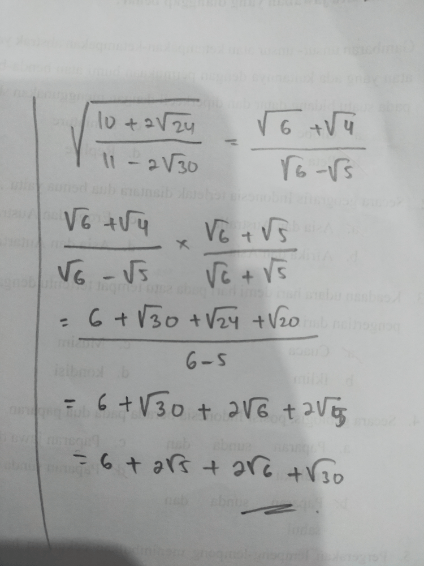 √((10 + 2√24)/(11 - 2√30)) = (√6 + √4)/(√6 - √5)
(√6 + √4)/(√6 - √5) × (√6 + √5)/(√6 + √5)
= (6 + √30 + √24 + √20)/(6 - 5)
= 6 + √30 + 2√6 + 2√5
= 6 + 2√5 + 2√6 + √30